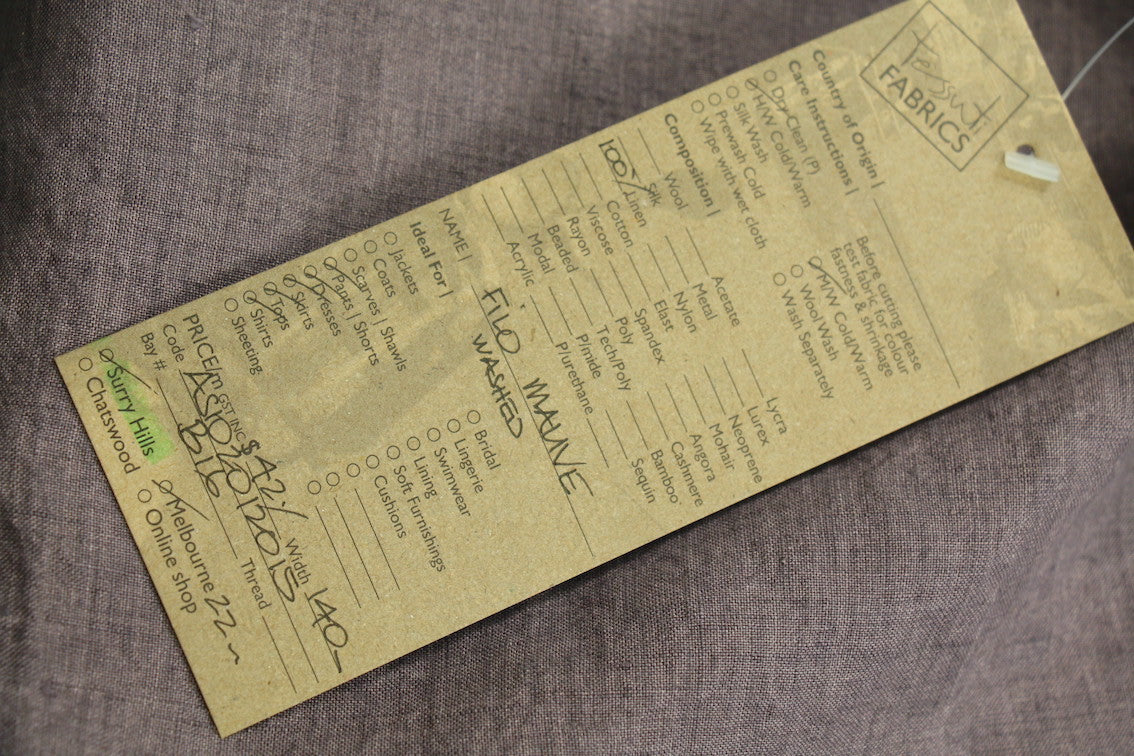 tessuti
FABRICS
Country of Origin |
Care Instructions |
Dry Clean (P)
H/W Cold/Warm
Silk Wash
Prewash Cold
Wipe with wet cloth
Before cutting please
test fabric for colour
fastness & shrinkage
M/W Cold/Warm
Wool Wash
Wash Separately
Composition |
Wool
Silk
100% Linen
Cotton
Viscose
Rayon
Beaded
Modal
Acrylic
Acetate
Metal
Nylon
Elast
Spandex
Poly
Tech/Poly
P/mide
P/urethane
Lycra
Lurex
Neoprene
Mohair
Angora
Cashmere
Bamboo
Sequin
NAME | FILO MAUVE
WASHED
Ideal For |
Jackets
Coats
Scarves | Shawls
Pants | Shorts
Dresses
Skirts
Tops
Shirts
Sheeting
Bridal
Lingerie
Swimwear
Lining
Soft Furnishings
Cushions
PRICE/m GST INC $42/ Width 140-
Code
Bay # B16 Thread 22~
Surry Hills
Chatswood
Melbourne
Online shop